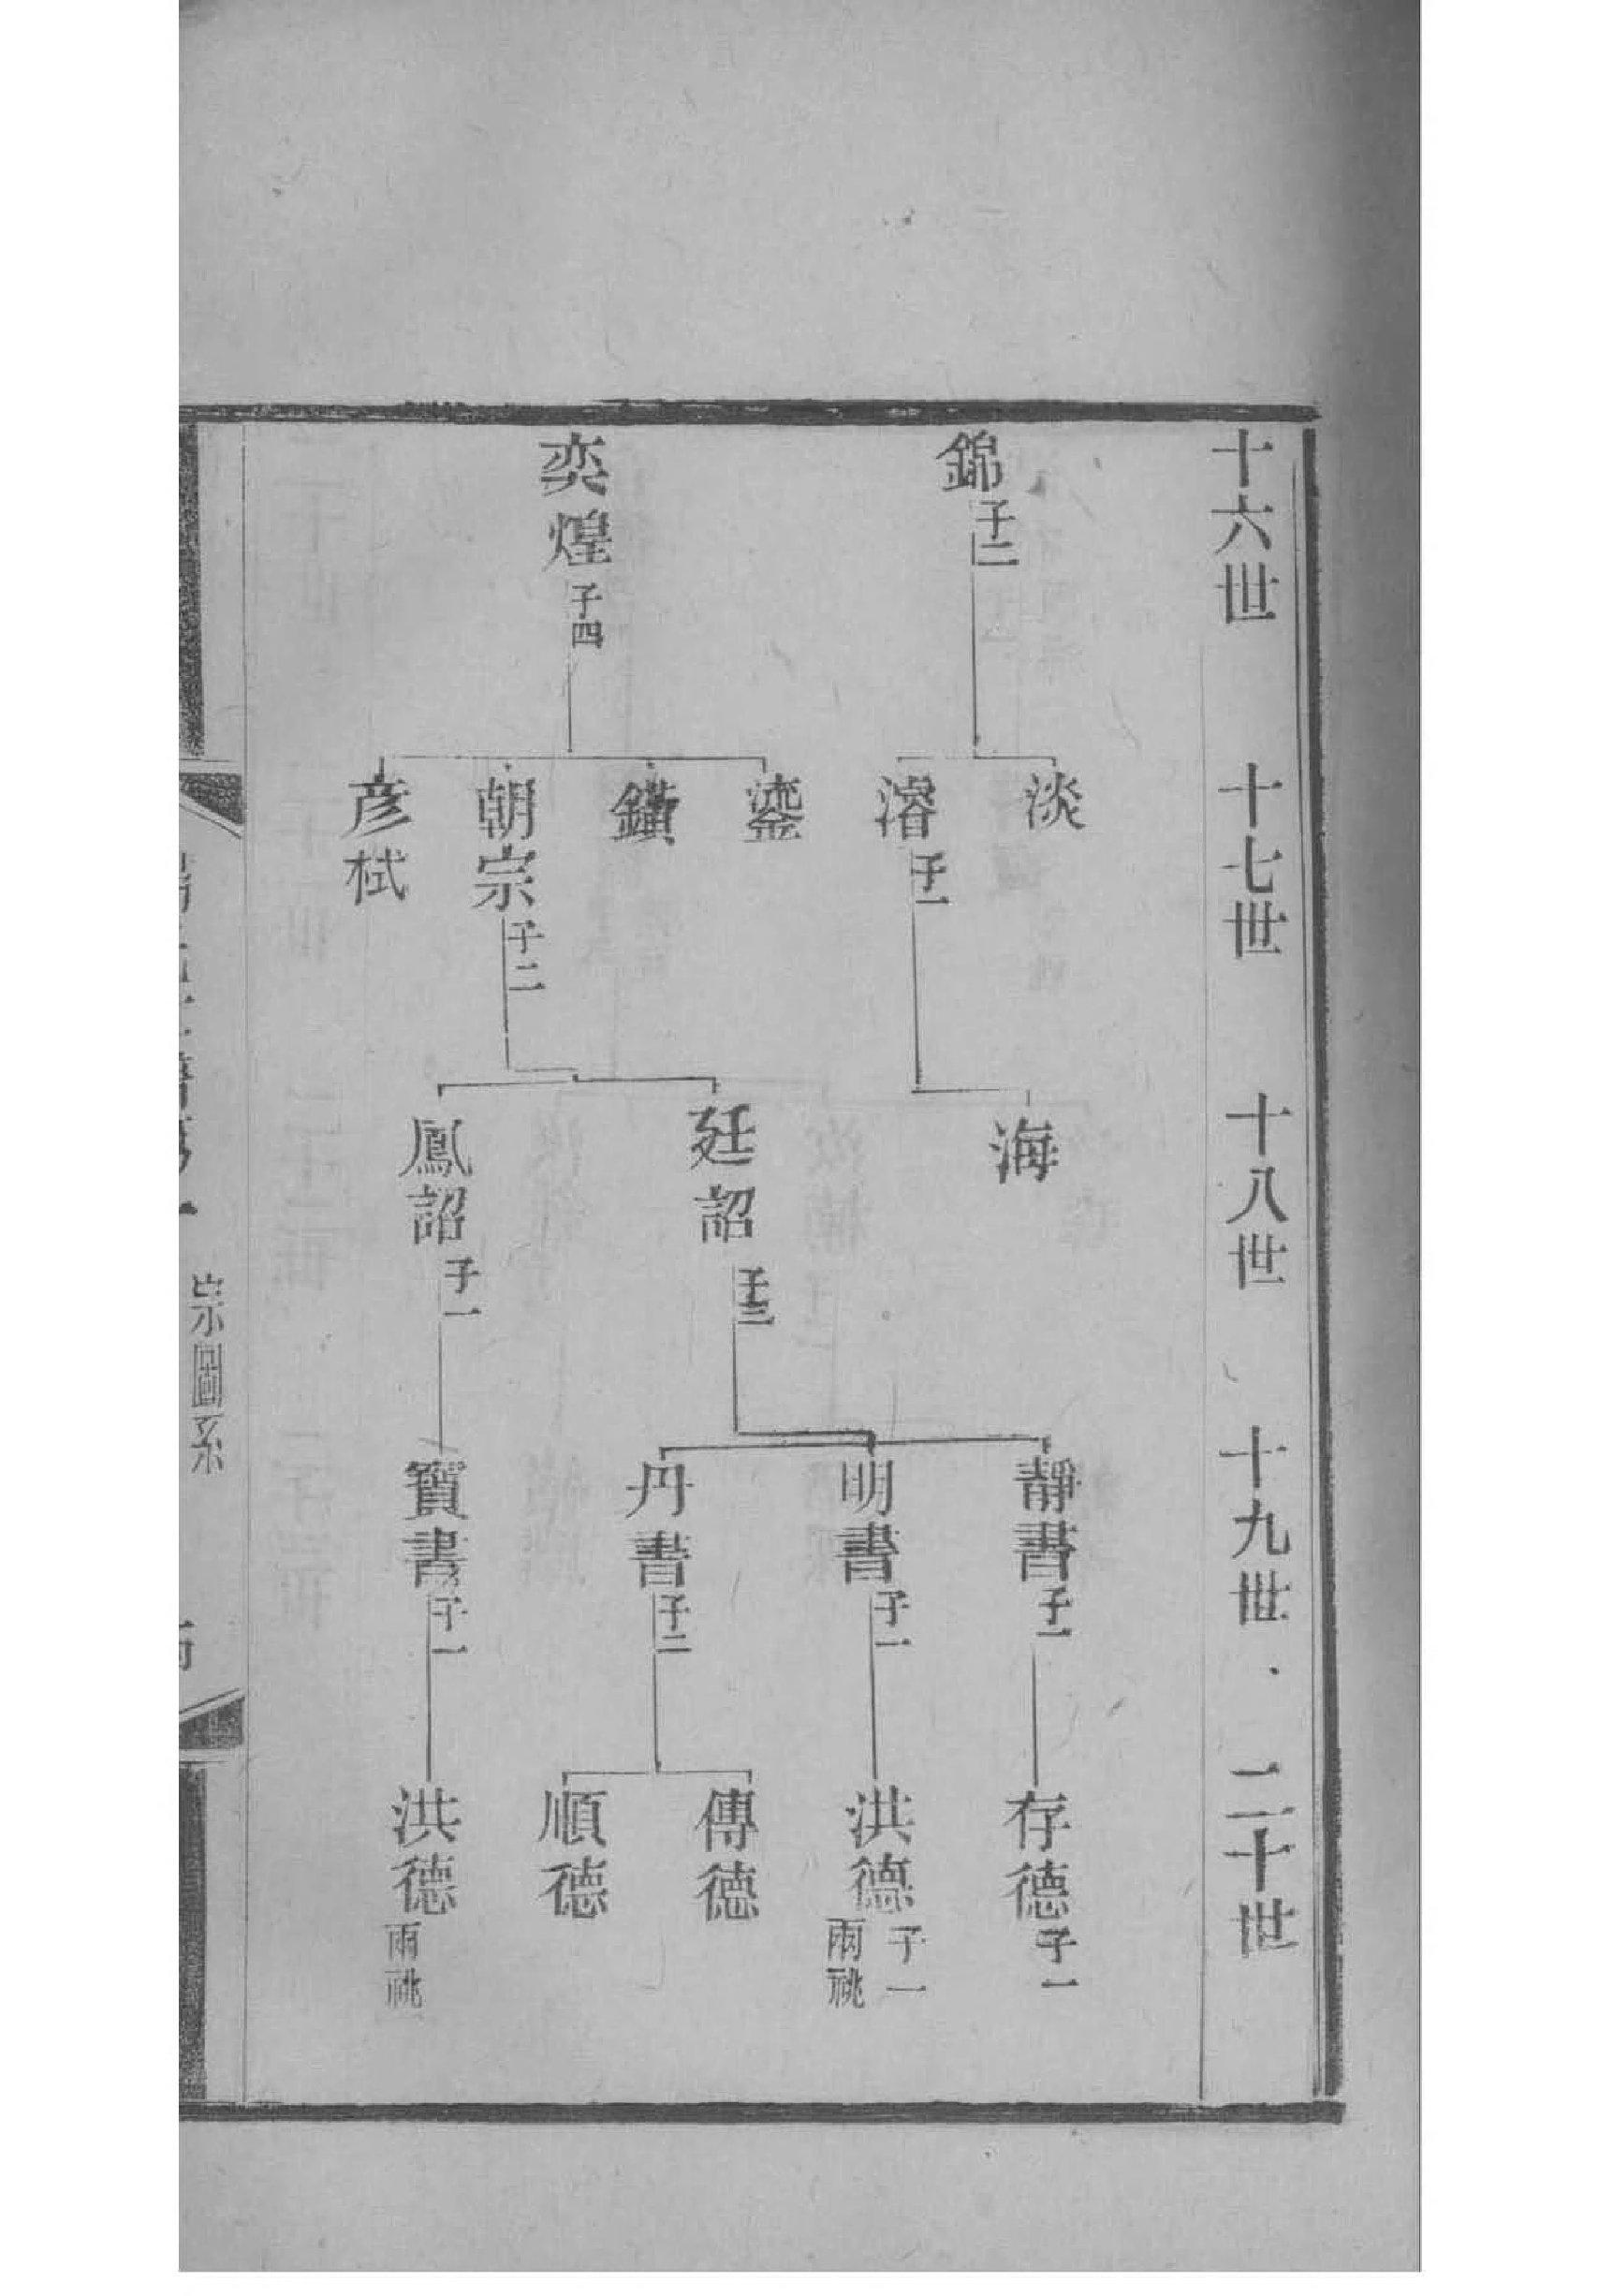 十六世 十七世 十八世 十九世 二十世
錦 子二
奕煌 子四
淡
濬 子一
鎏
鑛
朝宗 子二
彦栻
海
廷詔 子三
鳳詔 子一
靜書 子一
明書 子一
丹書 子二
寶書 子一
存德 子一
洪德 子一 兩祧
傳德
順德
洪德 兩祧
宗圖系